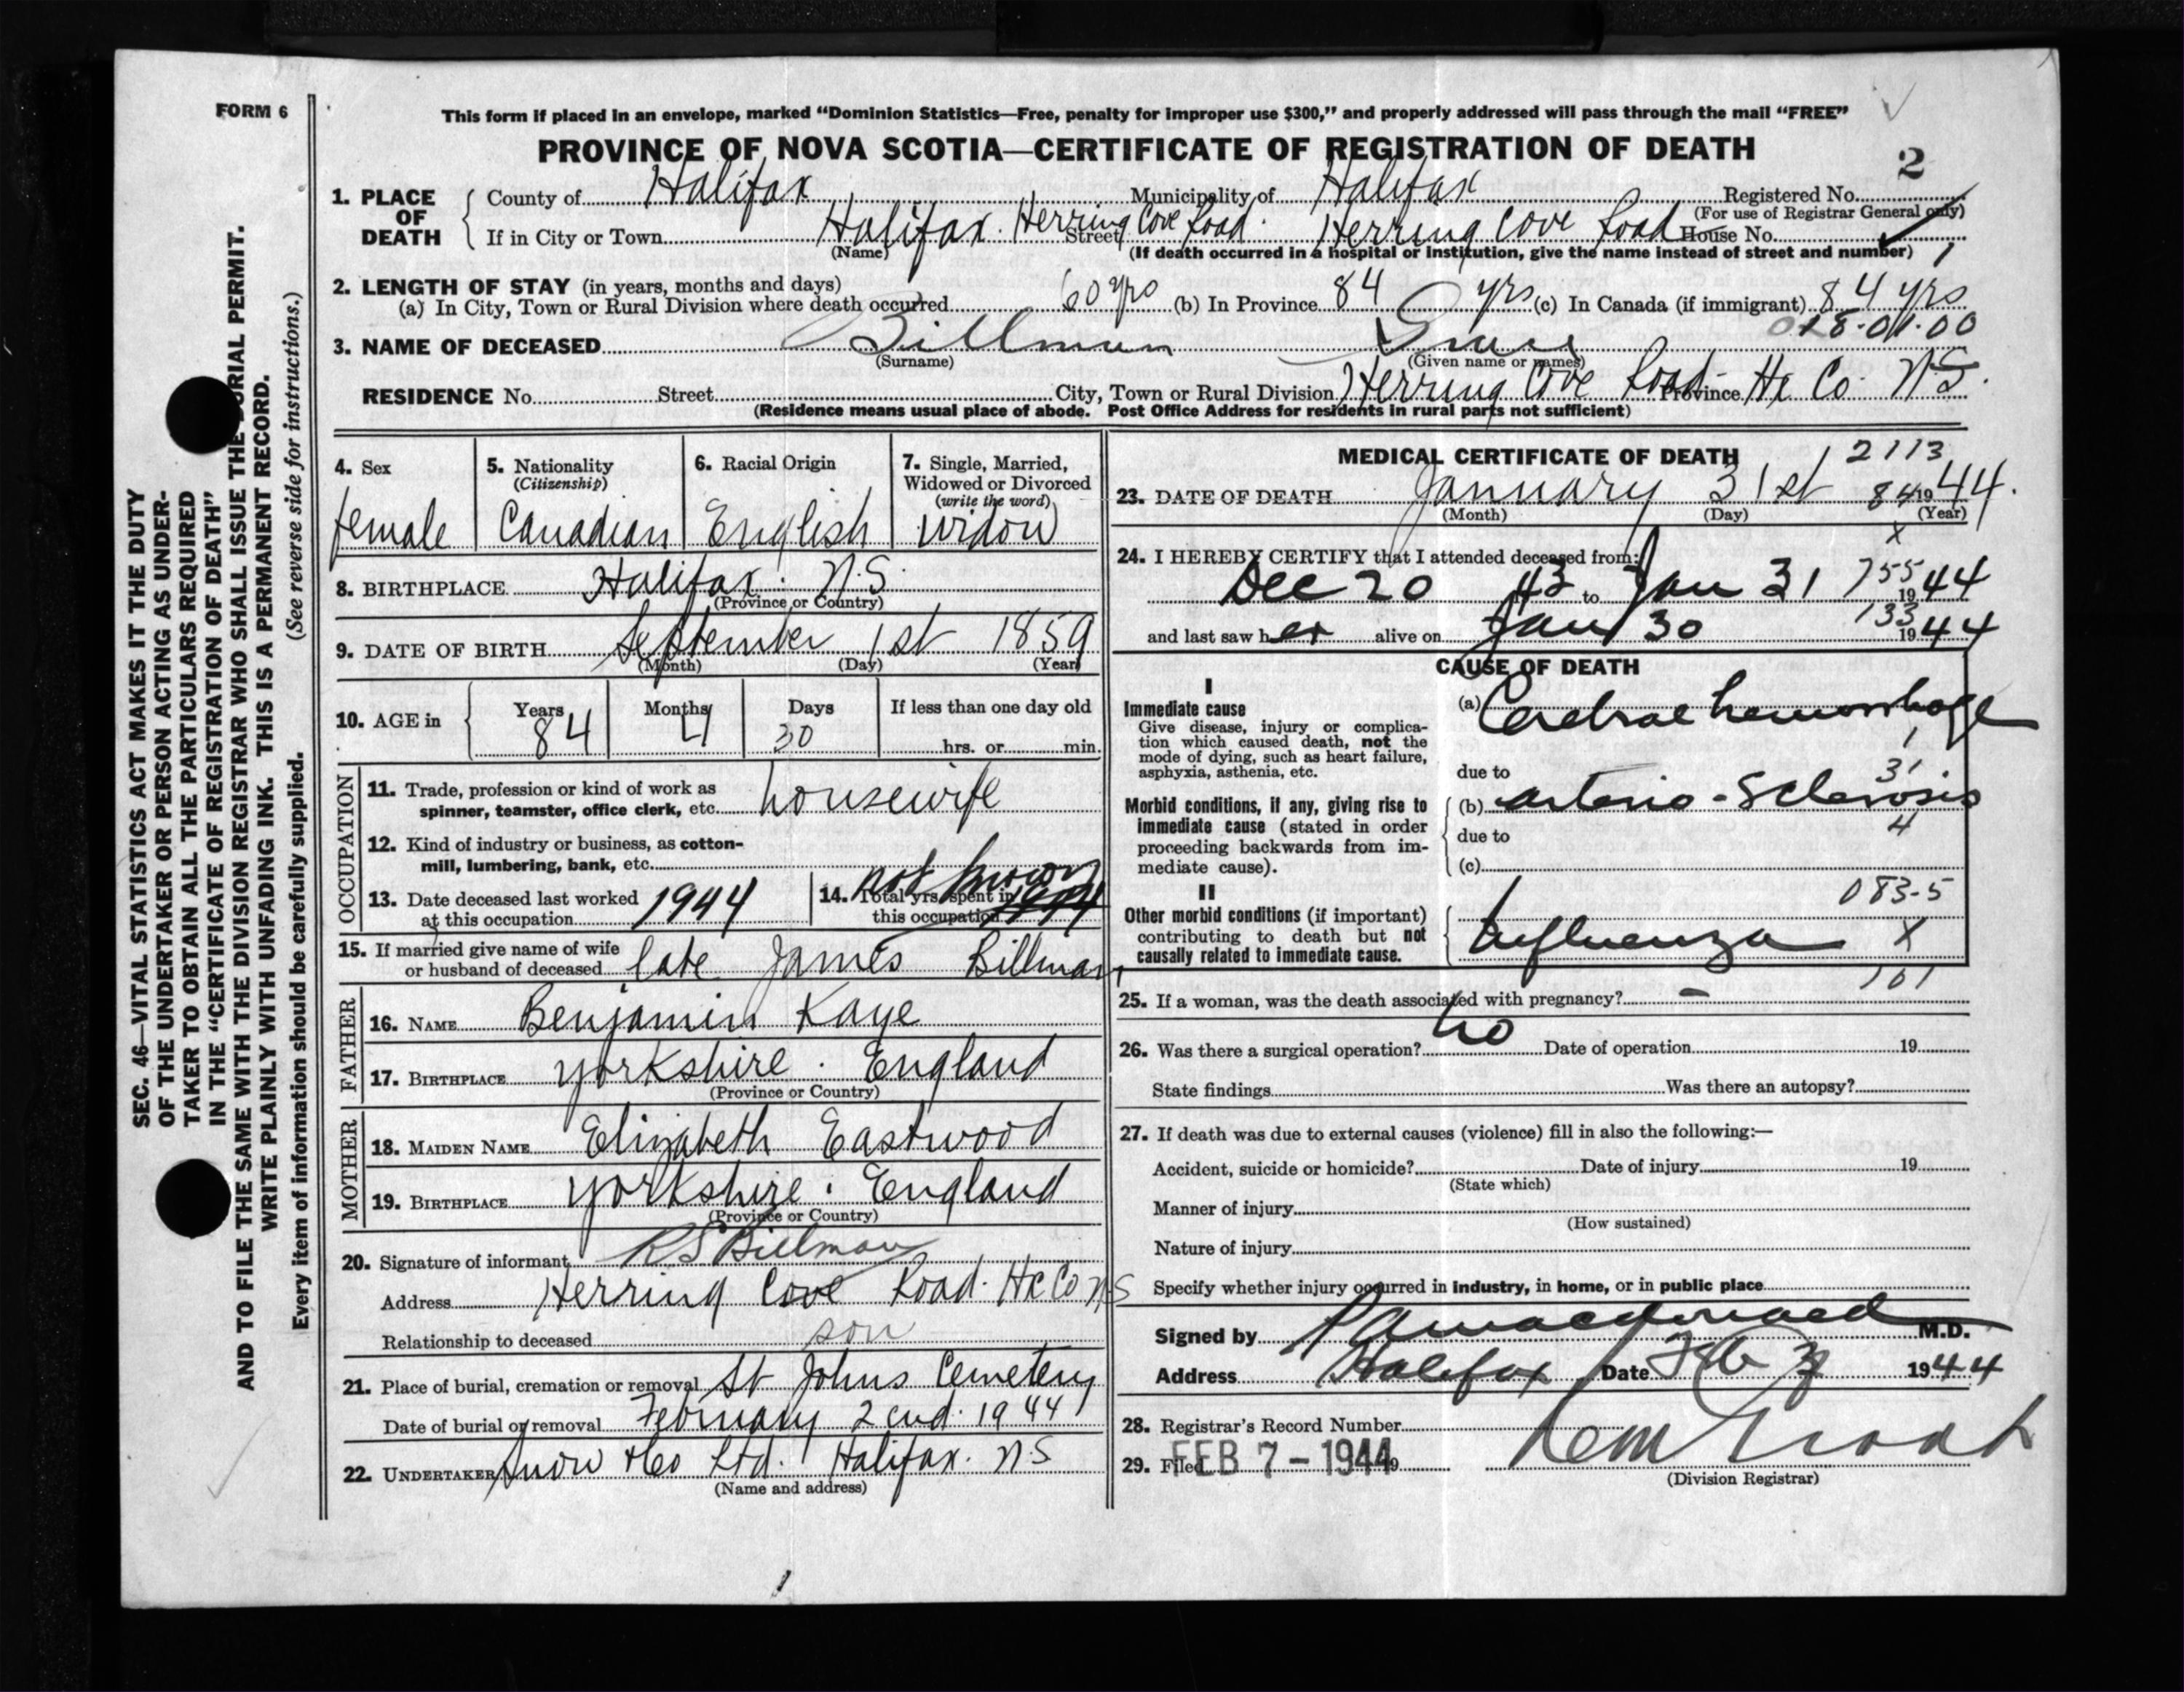 FORM 6
This form if placed in an envelope, marked “Dominion Statistics—Free, penalty for improper use $300,” and properly addressed will pass through the mail “FREE”
PROVINCE OF NOVA SCOTIA—CERTIFICATE OF REGISTRATION OF DEATH
2
1. PLACE OF DEATH
County of Halifax Municipality of Halifax Registered No.
(For use of Registrar General only)
If in City or Town Halifax. Herring Cove Road. Street Herring Cove Road House No.
(Name) (If death occurred in a hospital or institution, give the name instead of street and number) 1
2. LENGTH OF STAY (in years, months and days)
(a) In City, Town or Rural Division where death occurred 60 yrs (b) In Province 84 yrs (c) In Canada (if immigrant) 84 yrs
018-01.00
3. NAME OF DECEASED Billman
(Surname) (Given name or names)
RESIDENCE No. Street City, Town or Rural Division Herring Cove Road- Province Hx Co. N.S.
(Residence means usual place of abode. Post Office Address for residents in rural parts not sufficient)
4. Sex
female
5. Nationality
(Citizenship)
Canadian
6. Racial Origin
English
7. Single, Married,
Widowed or Divorced
(write the word)
widow
8. BIRTHPLACE Halifax. N.S.
(Province or Country)
9. DATE OF BIRTH September 1st 1859
(Month) (Day) (Year)
10. AGE in
Years Months Days If less than one day old
84 4 30 hrs. or min.
OCCUPATION
11. Trade, profession or kind of work as
spinner, teamster, office clerk, etc. housewife
12. Kind of industry or business, as cotton-
mill, lumbering, bank, etc.
13. Date deceased last worked
at this occupation 1944
14. Total yrs. spent in
this occupation 1944 not known
15. If married give name of wife
or husband of deceased late James Billman
FATHER
16. NAME Benjamin Kaye
17. BIRTHPLACE Yorkshire. England
(Province or Country)
MOTHER
18. MAIDEN NAME Elizabeth Eastwood
19. BIRTHPLACE Yorkshire. England
(Province or Country)
20. Signature of informant R S Billman
Address Herring Cove Road. Hx Co NS
Relationship to deceased son
21. Place of burial, cremation or removal St Johns Cemetery
Date of burial or removal February 2cnd. 1944
22. UNDERTAKER Snow & Co Ltd. Halifax. N.S
(Name and address)
MEDICAL CERTIFICATE OF DEATH 2113
23. DATE OF DEATH January 31st 84 1944.
(Month) (Day) (Year)
x
24. I HEREBY CERTIFY that I attended deceased from:
Dec 20 43 to Jan 31 755 1944
133
and last saw her alive on Jan 30 1944
CAUSE OF DEATH
I
Immediate cause
Give disease, injury or complica-
tion which caused death, not the
mode of dying, such as heart failure,
asphyxia, asthenia, etc.
(a) Cerebral hemorrhage
1
due to 3'
Morbid conditions, if any, giving rise to
immediate cause (stated in order
proceeding backwards from im-
mediate cause).
(b) arterio-Sclerosis
due to 4
(c)
II
Other morbid conditions (if important)
contributing to death but not
causally related to immediate cause.
083-5
Influenza X
101
25. If a woman, was the death associated with pregnancy? –
26. Was there a surgical operation? no Date of operation 19
State findings Was there an autopsy?
27. If death was due to external causes (violence) fill in also the following:—
Accident, suicide or homicide? Date of injury 19
(State which)
Manner of injury
(How sustained)
Nature of injury
Specify whether injury occurred in industry, in home, or in public place
Signed by Macdonald M.D.
Address Halifax Date Feb 1944
28. Registrar’s Record Number
29. Filed FEB 7 - 1944 19
(Division Registrar)
SEC. 46—VITAL STATISTICS ACT MAKES IT THE DUTY
OF THE UNDERTAKER OR PERSON ACTING AS UNDER-
TAKER TO OBTAIN ALL THE PARTICULARS REQUIRED
IN THE “CERTIFICATE OF REGISTRATION OF DEATH”
AND TO FILE THE SAME WITH THE DIVISION REGISTRAR WHO SHALL ISSUE THE BURIAL PERMIT.
WRITE PLAINLY WITH UNFADING INK. THIS IS A PERMANENT RECORD.
Every item of information should be carefully supplied. (See reverse side for instructions.)